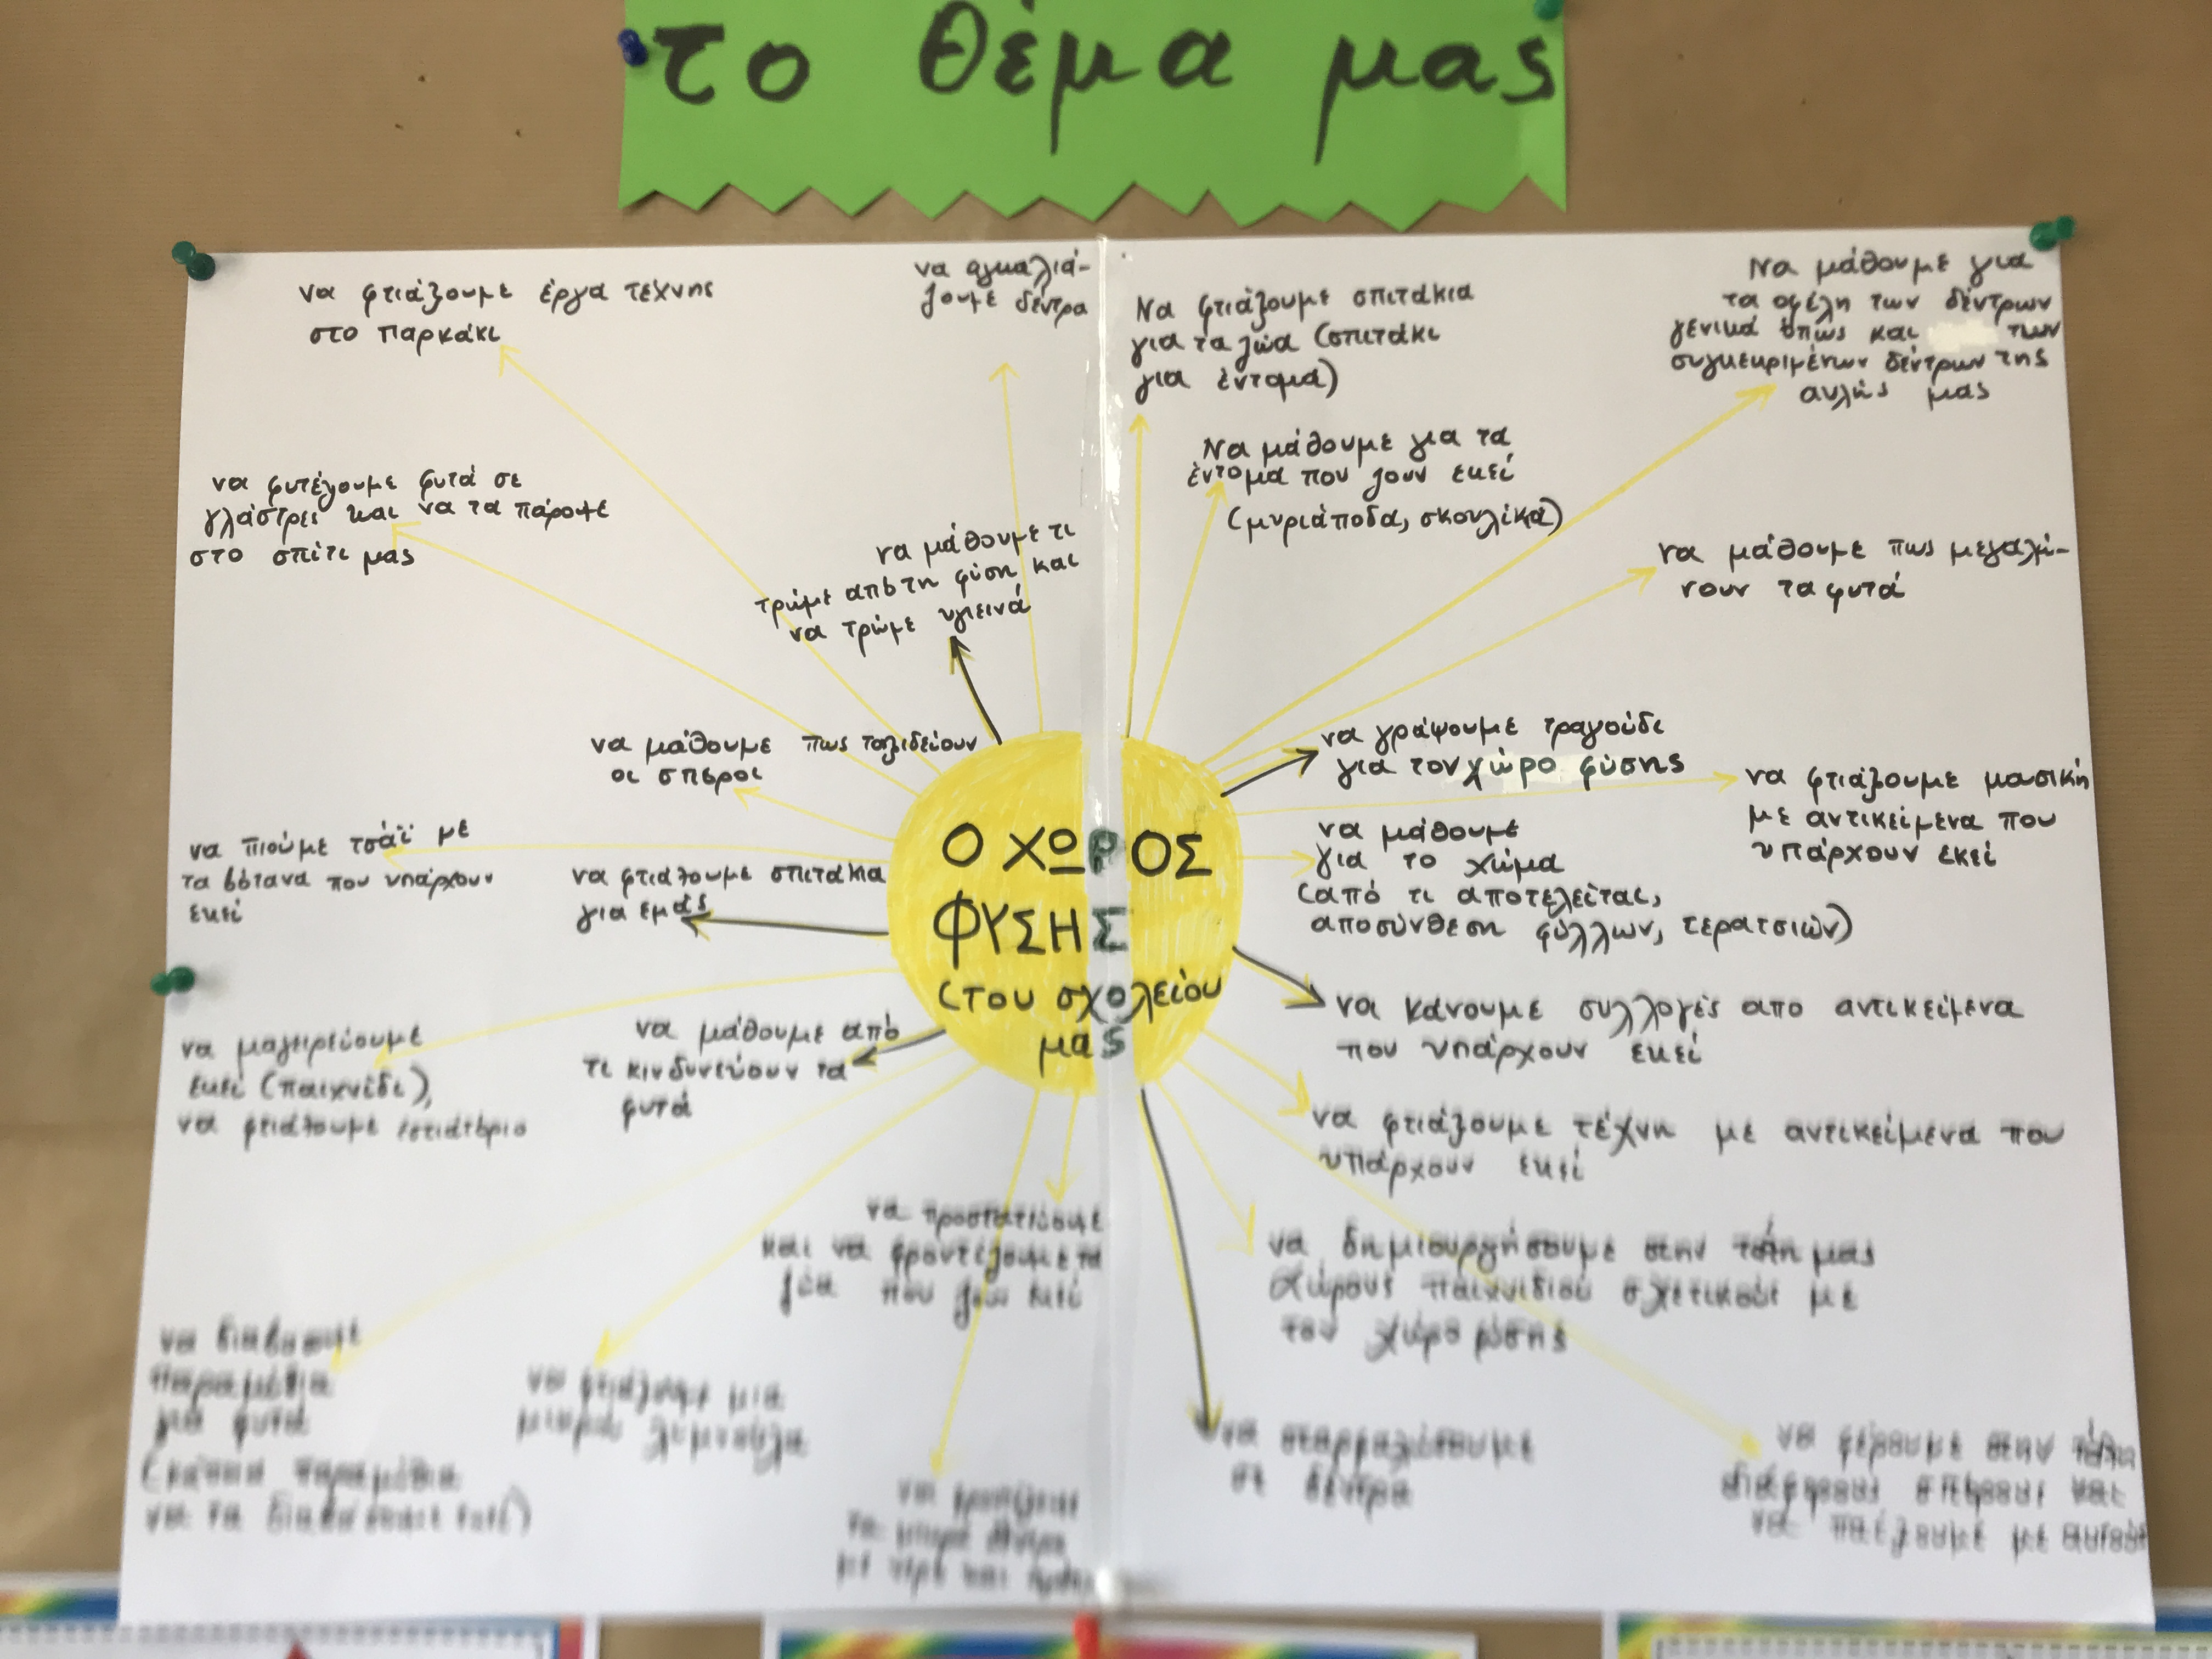 το θέμα μας
να φτιάξουμε έργα τέχνης
στο παρκάκι
να αγκαλιά-
ζουμε δέντρα
Να φτιάξουμε σπιτάκια
για τα ζώα (σπιτάκι
για έντομα)
Να μάθουμε για
τα οφέλη των δέντρων
γενικά όπως και των
συγκεκριμένων δέντρων της
αυλής μας
Να μάθουμε για τα
έντομα που ζουν εκεί
(μυριάποδα, σκουλίκια)
να φυτέψουμε φυτά σε
γλάστρες και να τα πάρουμε
στο σπίτι μας
να μάθουμε τι
τρώμε από τη φύση και
να τρώμε υγιεινά
να μάθουμε πως μεγαλώ-
νουν τα φυτά
να μάθουμε πως ταξιδεύουν
οι σπόροι
να γράψουμε τραγούδι
για τον χώρο φύσης
να φτιάξουμε μουσική
με αντικείμενα που
υπάρχουν εκεί
να πιούμε τσάϊ με
τα βότανα που υπάρχουν
εκεί
να φτιάξουμε σπιτάκια
για εμάς
Ο ΧΩΡΟΣ
ΦΥΣΗΣ
(του σχολείου
μας
να μάθουμε
για το χώμα
(από τι αποτελείται,
αποσύνθεση φύλλων, τερατσιών)
να κάνουμε συλλογές απο αντικείμενα
που υπάρχουν εκεί
να μαγειρεύουμε
εκεί (παιχνίδι),
να φτιάξουμε εστιατόριο
να μάθουμε από
τι κινδυνεύουν τα
φυτά
να φτιάξουμε τέχνη με αντικείμενα που
υπάρχουν εκεί
να προστατεύουμε
και να φροντίζουμε τα
ζώα που ζουν εκεί
να δημιουργήσουμε στην τάξη μας
χώρους παιχνιδιού σχετικούς με
τον χώρο φύσης
να διαβάσουμε
παραμύθια
για φυτά
παραμύθια
να τα
να φτιάξουμε μια
μικρή λιμνούλα
να σκαρφαλώσουμε
σε δέντρα
να
τα μικρά δέντρα
με νερό και
να φέρουμε στην τάξη
διάφορους σπόρους και
να παίξουμε με αυτούς